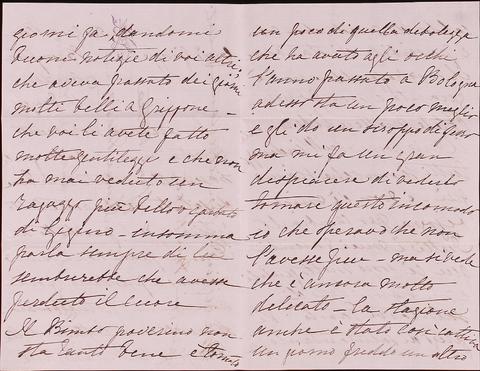 giorni fa, dandomi
buone notizie di voi altri,
che aveva passato dei giorni
molti belli a Grippone –
che voi li avete fatto
molte gentilezze e che non
ha mai veduto un
ragazzo più bello e garbato
di Gegino – insomma
parla sempre di lui
semburebbe che avesse
perduto il cuore
Il Bimbo poverino non
sta tanto bene e tornato
un poco di quella debolezza
che ha avuto agli occhi
l'anno passato a Bologna
adesso sta un poco meglio
e gli do un siroppo di ferro
ma mi fa un gran
dispiacere di vederlo
tornare questo incomodo
io che speravo che non
l'avesse più – ma si vede
che è ancora molto
delicato – la stagione
anche è stato così cattiva
un giorno freddo un altro